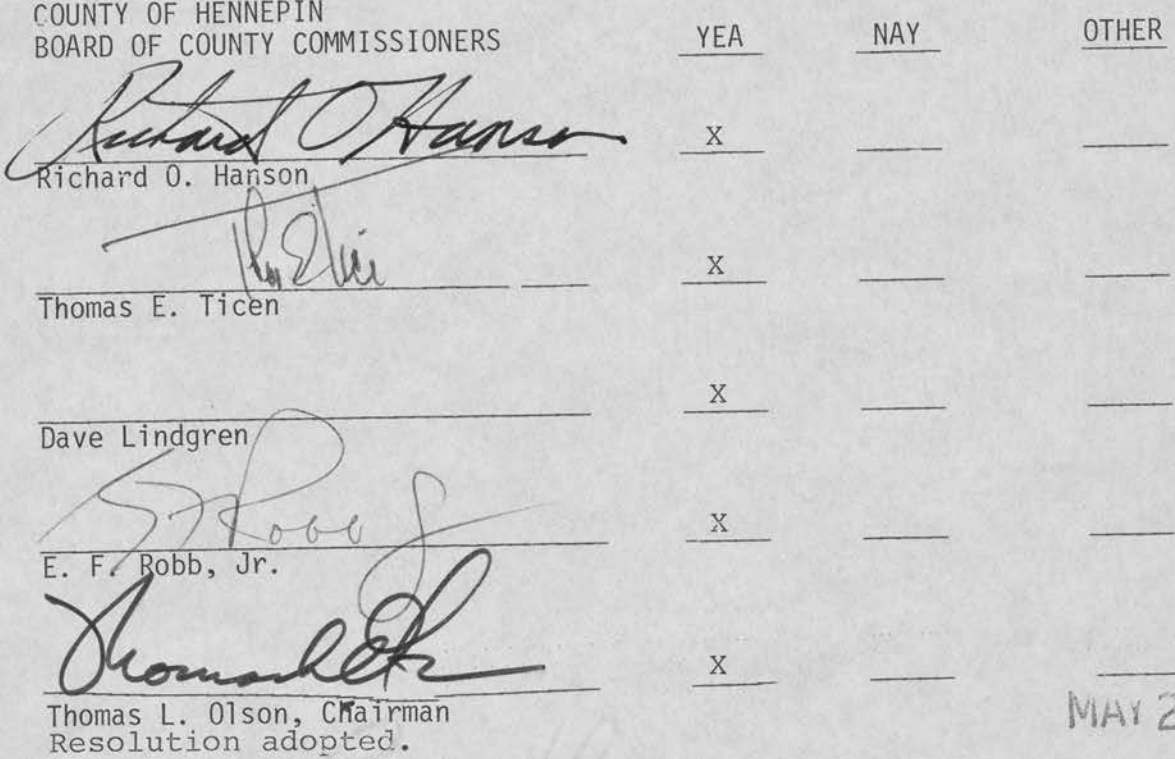 COUNTY OF HENNEPIN
BOARD OF COUNTY COMMISSIONERS YEA NAY OTHER
Richard O Hanson X
Richard O. Hanson
X
Thomas E. Ticen
X
Dave Lindgren
E F Robb Jr X
E. F. Robb, Jr.
Thomas L Olson X
Thomas L. Olson, Chairman
Resolution adopted. MAY 2